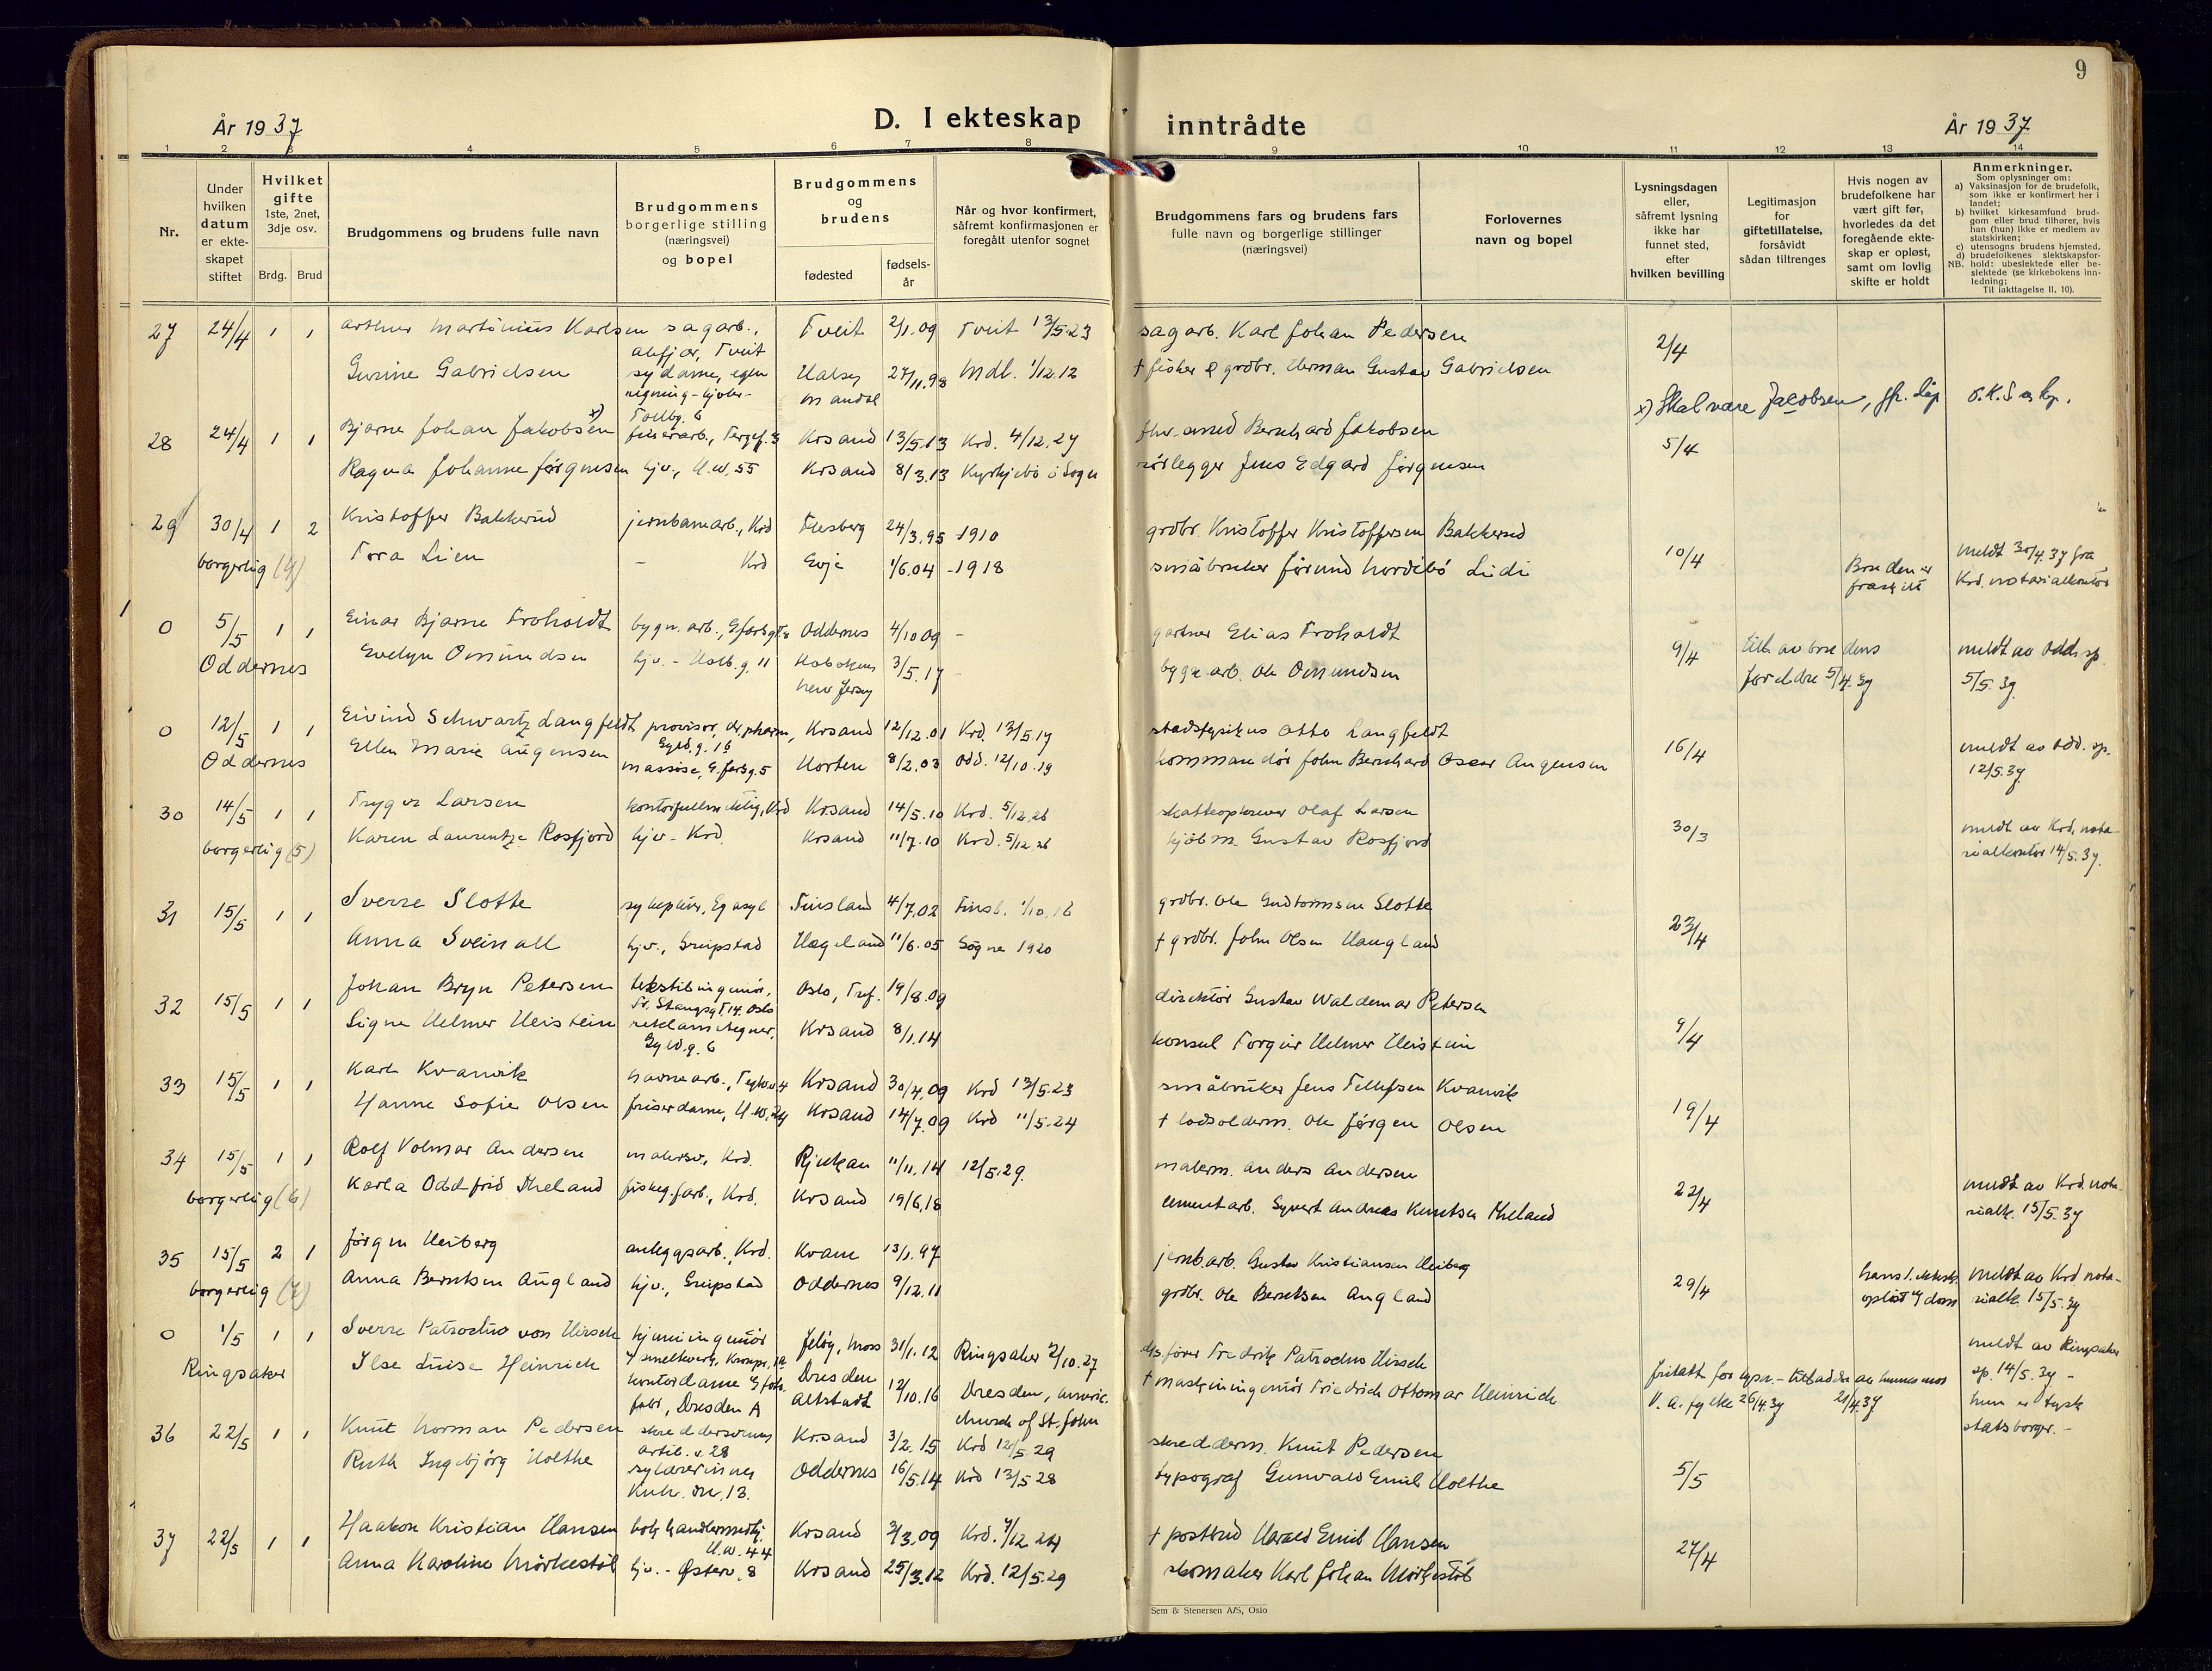 9
År 1937
D. I ekteskap inntrådte
År 1937
1 2 3 4 5 6 7 8 9 10 11 12 13 14
Nr.
Under hvilken datum er ekteskapet stiftet
Hvilket gifte 1ste, 2net, 3dje osv.
Brdg. Brud
Brudgommens og brudens fulle navn
Brudgommens borgerlige stilling (næringsvei) og bopel
Brudgommens og brudens
fødested
fødsels-år
Når og hvor konfirmert, såfremt konfirmasjonen er foregått utenfor sognet
Brudgommens fars og brudens fars fulle navn og borgerlige stillinger (næringsvei)
Forlovernes navn og bopel
Lysningsdagen eller, såfremt lysning ikke har funnet sted, efter hvilken bevilling
Legitimasjon for giftetillatelse, forsåvidt sådan tiltrenges
Hvis nogen av brudefolkene har vært gift før, hvorledes da det foregående ekteskap er opløst, samt om lovlig skifte er holdt
Anmerkninger.
Som oplysninger om:
a) Vaksinasjon for de brudefolk, som ikke er konfirmert her i landet;
b) hvilket kirkesamfund brudgom eller brud tilhører, hvis han (hun) ikke er medlem av statskirken;
c) utensogns brudens hjemsted.
d) brudefolkenes slektskapsforhold: ubeslektede eller beslektede (se kirkebokens innledning;
NB. Til iakttagelse II, 10).
27 24/4 1 1 Arthur Martinius Karlsen sagarb., Tveit 2/1.09 Tveit 13/5.23 sagarb. Karl Johan Pedersen 2/4
Tveit
Gurine Gabrielsen sydame, egen Halse, Mandal 27/11.98 Mdl. 1/12.12 † fisker & grdbr. Herman Gustav Gabrielsen
Tollbg. 6
x) Skal være Jacobsen,
28 24/4 1 1 Bjarne Johan Jakobsen x) Krsand 13/5.13 Krd. 4/12.27 Bernhard Jakobsen 5/4
Ragna Johanne Jørgensen hjv., H.w. 55 Krsand 8/3.13 Kyrkjebø i Sogn rørlegger Jens Edgard Jørgensen
29 30/4 1 2 Kristoffer Bakkerud jernbanearb., Krd Flesberg 24/3.95 -1910 grdbr. Kristoffer Kristoffersen Bakkerud 10/4
borgerlig (4) Tora Lien - Krd Evje 1/6.04 -1918 småbruker Jørund
Bruden er fraskilt
meldt 30/4.37 fra Krd. notarialkontor
0 5/5 1 1 Einar Bjarne Froholdt bygn. arb., Oddernes 4/10 09 - gartner Elias Froholdt 9/4
Oddernes Evelyn Omundsen hjv. - Holb.g. 11 Hoboken New Jersey 3/5.17 - bygn. arb. Ole Omundsen
till. av brudens foreldre 5/4.37
meldt av Odd. sp. 5/5.37
0 12/5 1 1 Eivind Schwartz Langfeldt provisor, dr. pharm., Gyld.g. 16 Krsand 12/12.01 Krd. 13/5.17 stadsfysikus Otto Langfeldt 16/4
Oddernes Ellen Marie Augensen massøse, Horten 8/2.03 Odd. 12/10.19 kommandør John Bernhard Oscar Augensen
meldt av Odd. sp. 12/5.37
30 14/5 1 1 Trygve Larsen kontorfullmektig, Krd Krsand 14/5.10 Krd. 5/12.26 skatteopkrever Olaf Larsen 30/3
borgerlig (5) Karen Laurentze Rosfjord hjv - Krd. Krsand 11/7.10 Krd. 5/12.26 kjøbm. Gustav Rosfjord
meldt av Krd. notarialkontor 14/5.37.
31 15/5 1 1 Sverre Slotte sykepleier, Eg asyl Finsland 4/7.02 Finsl. 1/10.16 grdbr. Ole Gudtormsen Slotte 23/4
Anna Sveinall hjv., Greipstad Hægeland 11/6.05 Søgne 1920 † grdbr. John Olsen Haugland
32 15/5 1 1 Johan Bryn Petersen tekstilingeniør, Fr. Stangsgt. 14. Oslo Oslo, Tref. 19/8.09 direktør Gustav Waldemar Petersen 9/4
Signe Helmer Heistein reklametegner, Gyld.g. 6 Krsand 8/1.14 konsul Torgeir Helmer Heistein
33 15/5 1 1 Karl Kvarvik havnearb., Krsand 30/4.09 Krd 13/5.23 småbruker Jens Tellefsen Kvarvik 19/4
Hanne Sofie Olsen friserdame, H.w. 24 Krsand 14/7.09 Krd 11/5.24 † losolderm. Ole Jørgen Olsen
34 15/5 1 1 Rolf Volmar Andersen malersv., Krd. Rjukan 11/11.14 12/5.29. malerm. Anders Andersen 22/4
borgerlig (6) Karla Oddfrid Meland Krd. Krsand 19/6.18 cementarb. Syvert Andreas Knutsen Meland
meldt av Krd. notarialk. 15/5.37
35 15/5 2 1 Jørgen Heiberg anleggsarb., Krd. Kvam 13/1.97 jernb.arb. Gustav Kristiansen Heiberg 29/4
borgerlig (7) Anna Berntsen Augland hjv., Greipstad Oddernes 9/12.11 grdbr. Ole Berntsen Augland
hans 1. ektesk. opløst v/ dom
meldt av Krd. notarialk. 15/5.37
0 1/5 1 1 Sverre Patroclus von Hirsch kjemiingeniør Jeløy, Moss 31/1.12 Ringsaker 2/10.27 Fredrik Patroclus Hirsch
Ringsaker Ilse Luise Heinrich kontordame Dresden A Dresden Altstadt 12/10.16 Dresden, americ. church of St. John † maskiningeniør Friedrich Ottomar Heinrich
fritatt for lysn. - V. A. fylke 26/4.37
21/4.37
meldt av Ringsaker sp. 14/5.37 - hun er tysk statsborger. -
36 22/5 1 1 Knut Norman Pedersen skreddersvenn, artil. v. 28 Krsand 3/2.15 Krd 12/5.29 skredderm. Knut Pedersen 5/5
Ruth Ingebjørg Holthe sylærerinne, Kuh. 13. Oddernes 16/5.14 Krd 13/5 28 typograf Gunvald Emil Holthe
37 22/5 1 1 Haakon Kristian Hansen bokhandlermedhj. H.w. 44 Krsand 2/3.09 Krd. 7/12 24 † postbud Harald Emil Hansen 27/4
Anna Karoline Mørkestøl hjv. - Østerv. 8 Krsand 25/3.12 Krd. 12/5.29 skomaker Karl Johan Mørkestøl
Sem & Stenersen A/S, Oslo